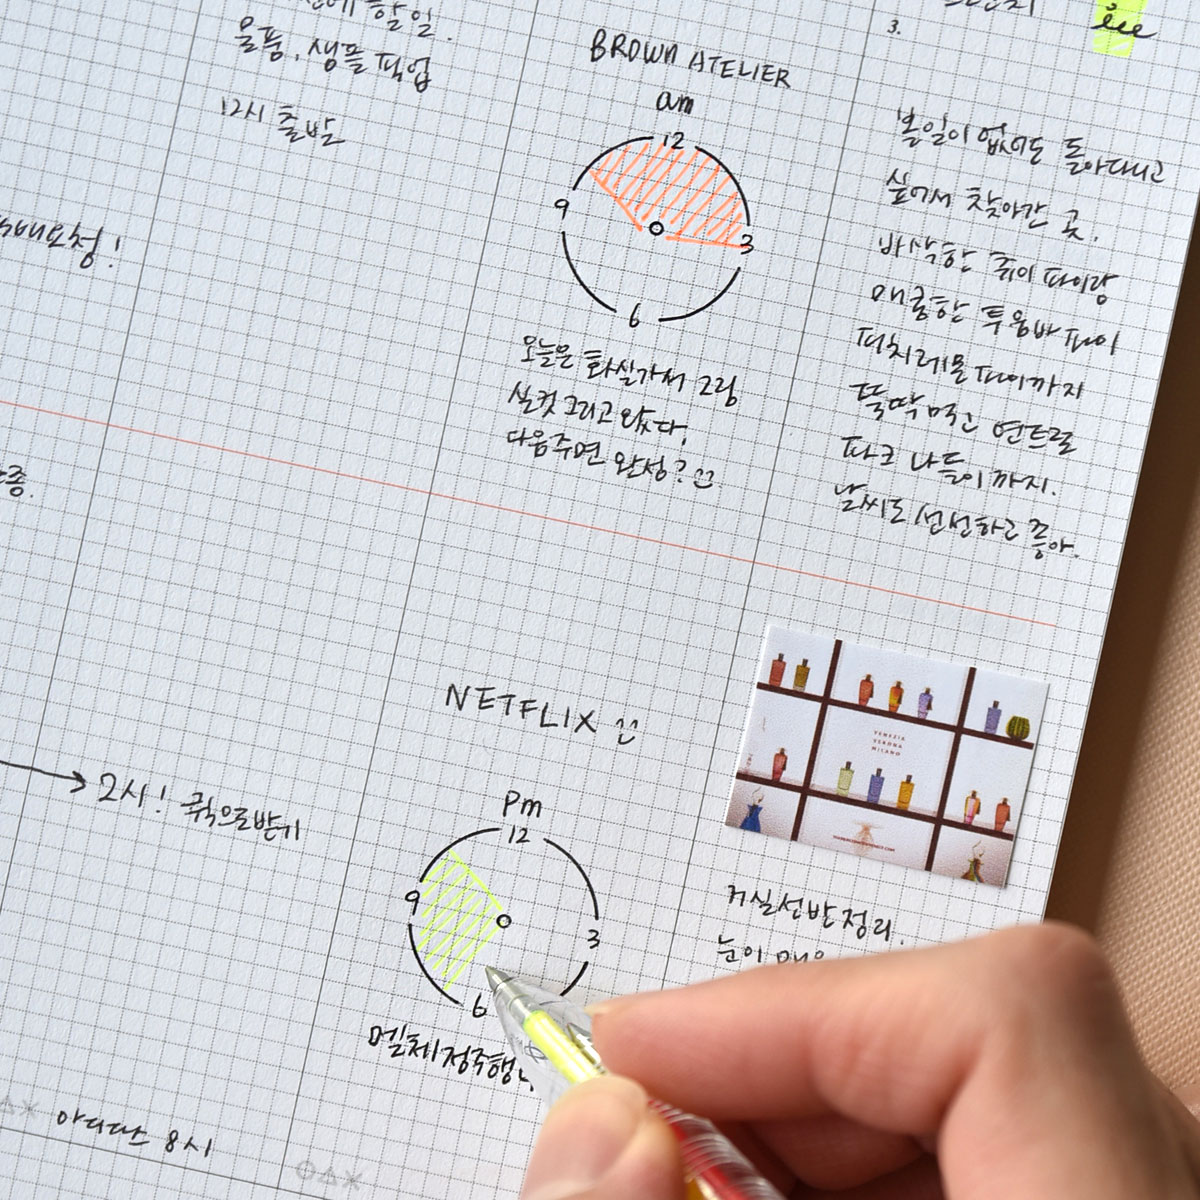 할일.
용품, 샘플 픽업
12시 출발
BROWN ATELIER
am
12
9
3
6
오늘은 화실가서 그림
실컷 그리고 왔다.
다음주면 완성?
3.
볼일이 없어도 돌아다니고
싶어서 찾아간 곳.
바삭한 쥐이파이랑
매콤한 투움바 파이
피치레몬 파이까지
뚝딱 먹고 연트럴
파크 나들이까지.
날씨도 선선하고 좋아.
NETFLIX
Pm
12
9
3
6
멜체 정주행
VENEZIA
VERONA
MILANO
거실선반정리.
눈이
2시! 퀵으로받기
아디다스 8시